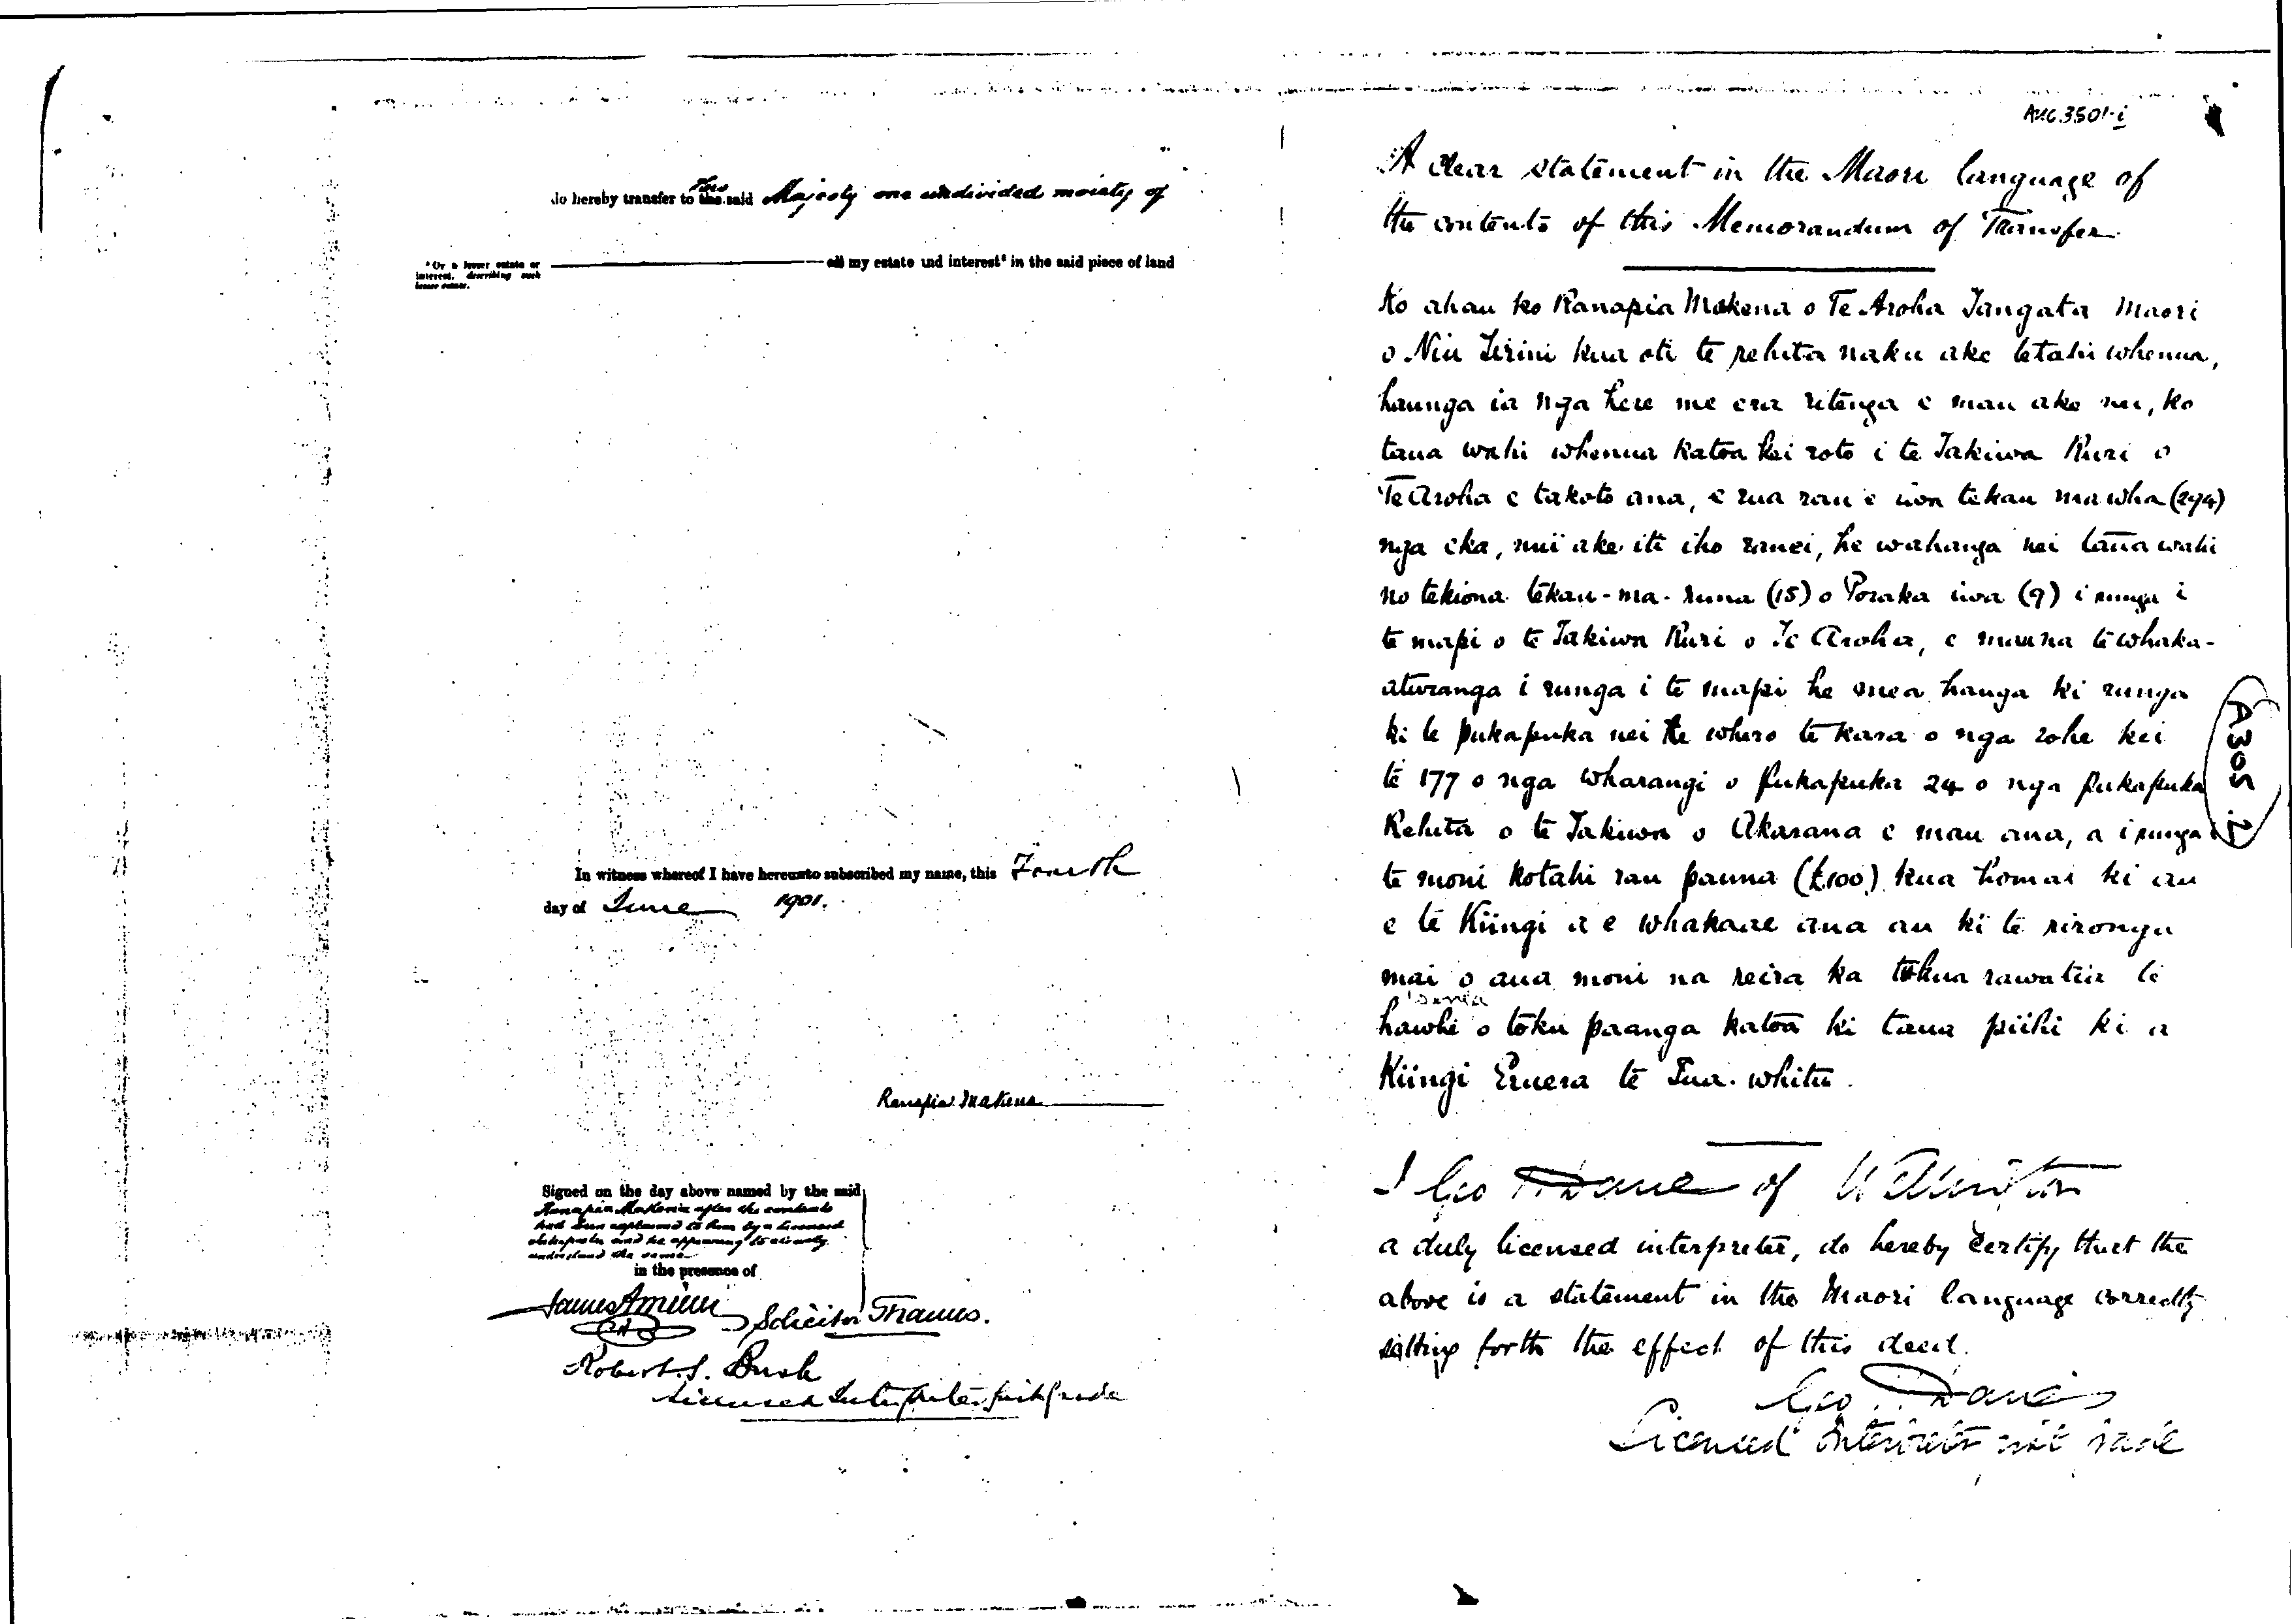 do hereby transfer to His said Majesty one undivided moiety of
* Or a lesser estate or
interest, describing such
lesser estate.
all my estate and interest* in the said piece of land
In witness whereof I have hereunto subscribed my name, this Fourth
day of June 1901.
Ranapia Makena
Signed on the day above named by the said
Ranapia Makena after the contents
had been explained to him by a licensed
interpreter and he appearing to clearly
understand the same
in the presence of
Solicitor Thames.
Robert. S. Bush
Licensed Interpreter first grade
AUC.3501-i
A clear statement in the Maori language of
the contents of this Memorandum of Transfer
Ko ahau ko Ranapia Makena o Te Aroha Tangata Maori
o Niu Tirini kua oti te rehita naku ake tetahi whenua,
haunga ia nga here me era ritenga e mau ake nei, ko
taua wahi whenua katoa kei roto i te Takiwa Ruri o
Te Aroha e takoto ana, e rua rau e iwa tekau ma wha (294)
nga eka, nui ake iti iho ranei, he wahanga nei taua wahi
no tekiona tekau-ma-rima (15) o Poraka iwa (9) i runga i
te mapi o te Takiwa Ruri o Te Aroha, e mau na te whaka-
aturanga i runga i te mapi he mea hanga ki runga
ki te pukapuka nei he whero te kara o nga rohe kei
te 177 o nga wharangi o pukapuka 24 o nga pukapuka
Rehita o te Takiwa o Akarana e mau ana, a i runga i
te moni kotahi rau pauna (£100) kua homai ki au
e te Kiingi a e whakaae ana au ki te rironga
mai o aua moni na reira ka tukua rawatia te
hawhe o toku paanga katoa ki taua piihi ki a
Kiingi Eruera te Tua-whitu.
I Geo Davies of Wellington
a duly licensed interpreter, do hereby certify that the
above is a statement in the Maori language correctly
setting forth the effect of this deed.
Geo Davies
Licensed Interpreter 1st Grade
(A305.2)